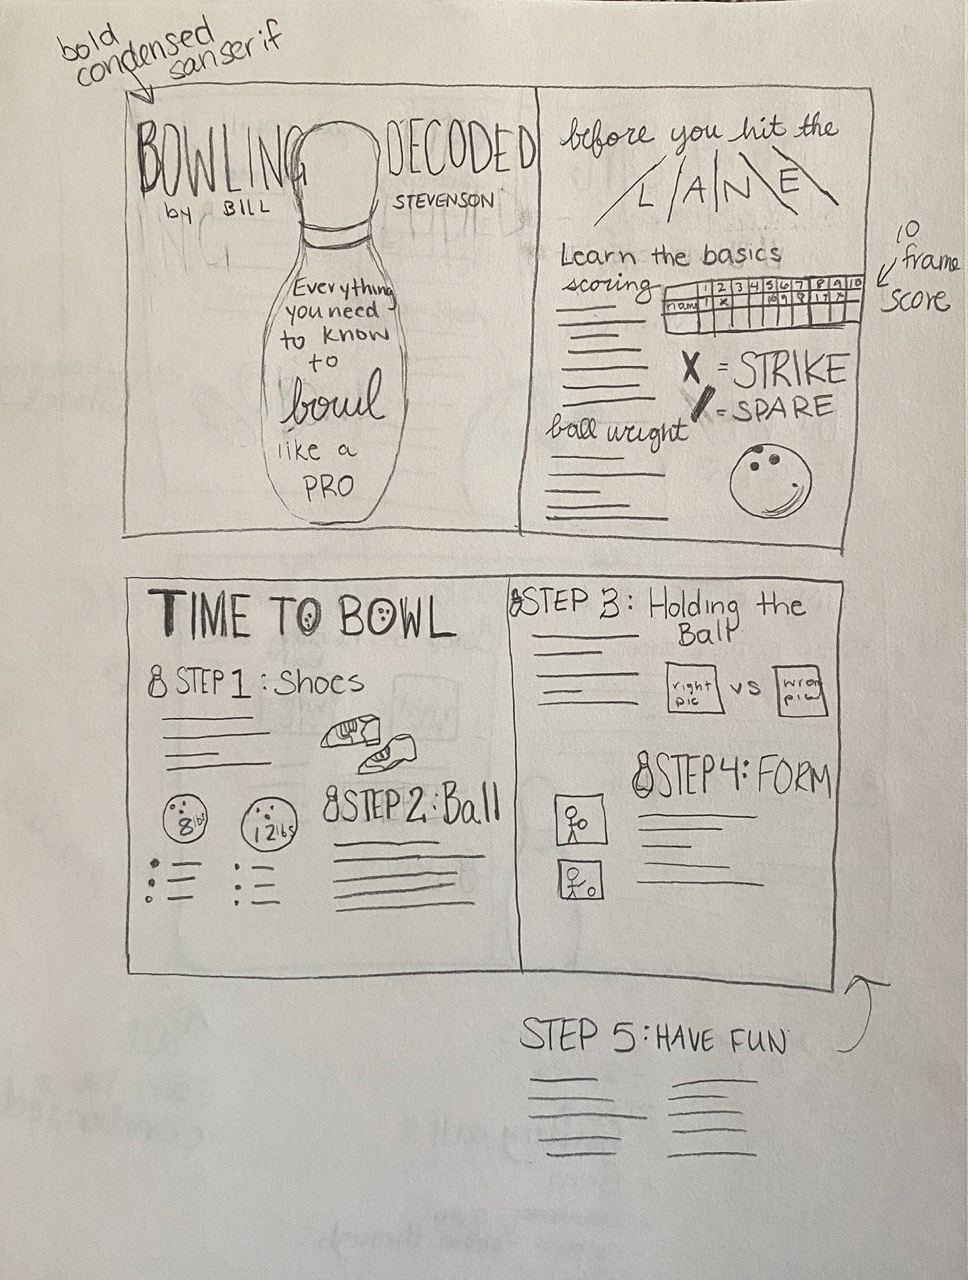 bold
condensed
sanserif
BOWLING DECODED
by BILL STEVENSON
Everything
you need
to know
to
bowl
like a
PRO
before you hit the
LANE
Learn the basics
scoring
1 2 3 4 5 6 7 8 9 10
name
10
frame
score
X = STRIKE
/ = SPARE
ball weight
TIME TO BOWL
STEP 1: Shoes
8lbs
12lbs
STEP 2: Ball
STEP 3: Holding the
Ball
right
pic
vs
wrong
pic
STEP 4: FORM
STEP 5: HAVE FUN